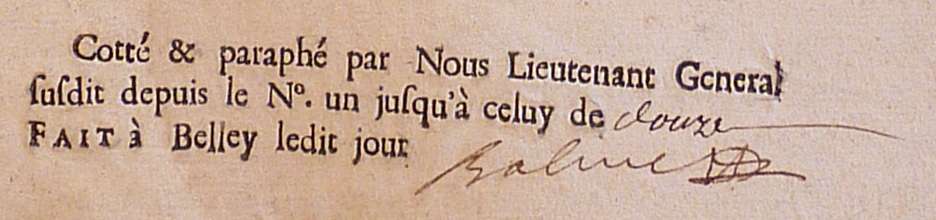 Cotté & paraphé par Nous Lieutenant General
ſuſdit depuis le Nº. un juſqu'à celuy de douze
FAIT à Belley ledit jour Balme